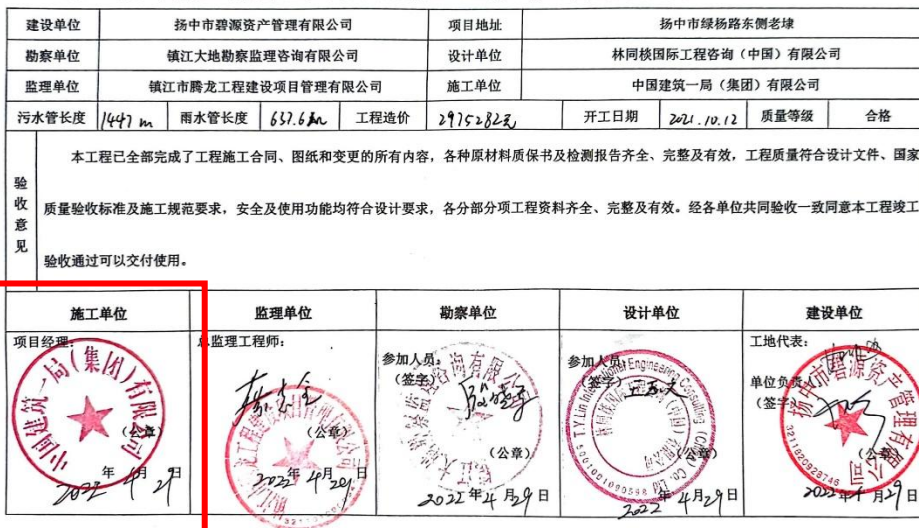 建设单位 扬中市碧源资产管理有限公司 项目地址 扬中市绿杨路东侧老埭
勘察单位 镇江大地勘察监理咨询有限公司 设计单位 林同棪国际工程咨询（中国）有限公司
监理单位 镇江市腾龙工程建设项目管理有限公司 施工单位 中国建筑一局（集团）有限公司
污水管长度 1447 m 雨水管长度 637.6m 工程造价 2975282元 开工日期 2021.10.12 质量等级 合格
验收意见
本工程已全部完成了工程施工合同、图纸和变更的所有内容，各种原材料质保书及检测报告齐全、完整及有效，工程质量符合设计文件、国家
质量验收标准及施工规范要求，安全及使用功能均符合设计要求，各分部分项工程资料齐全、完整及有效。经各单位共同验收一致同意本工程竣工
验收通过可以交付使用。
施工单位 监理单位 勘察单位 设计单位 建设单位
项目经理：
中国建筑一局(集团)有限公司
（公章）
2022年4月29日
总监理工程师：
（公章）
2022年4月29日
参加人员：
（签字）
（公章）
2022年4月29日
参加人员：
（签字）
T.Y.Lin International Engineering Consulting (China) Co. Ltd
（公章）
2022年4月29日
工地代表：
单位负责人
（签字）
扬中市碧源资产管理有限公司
2022年4月29日